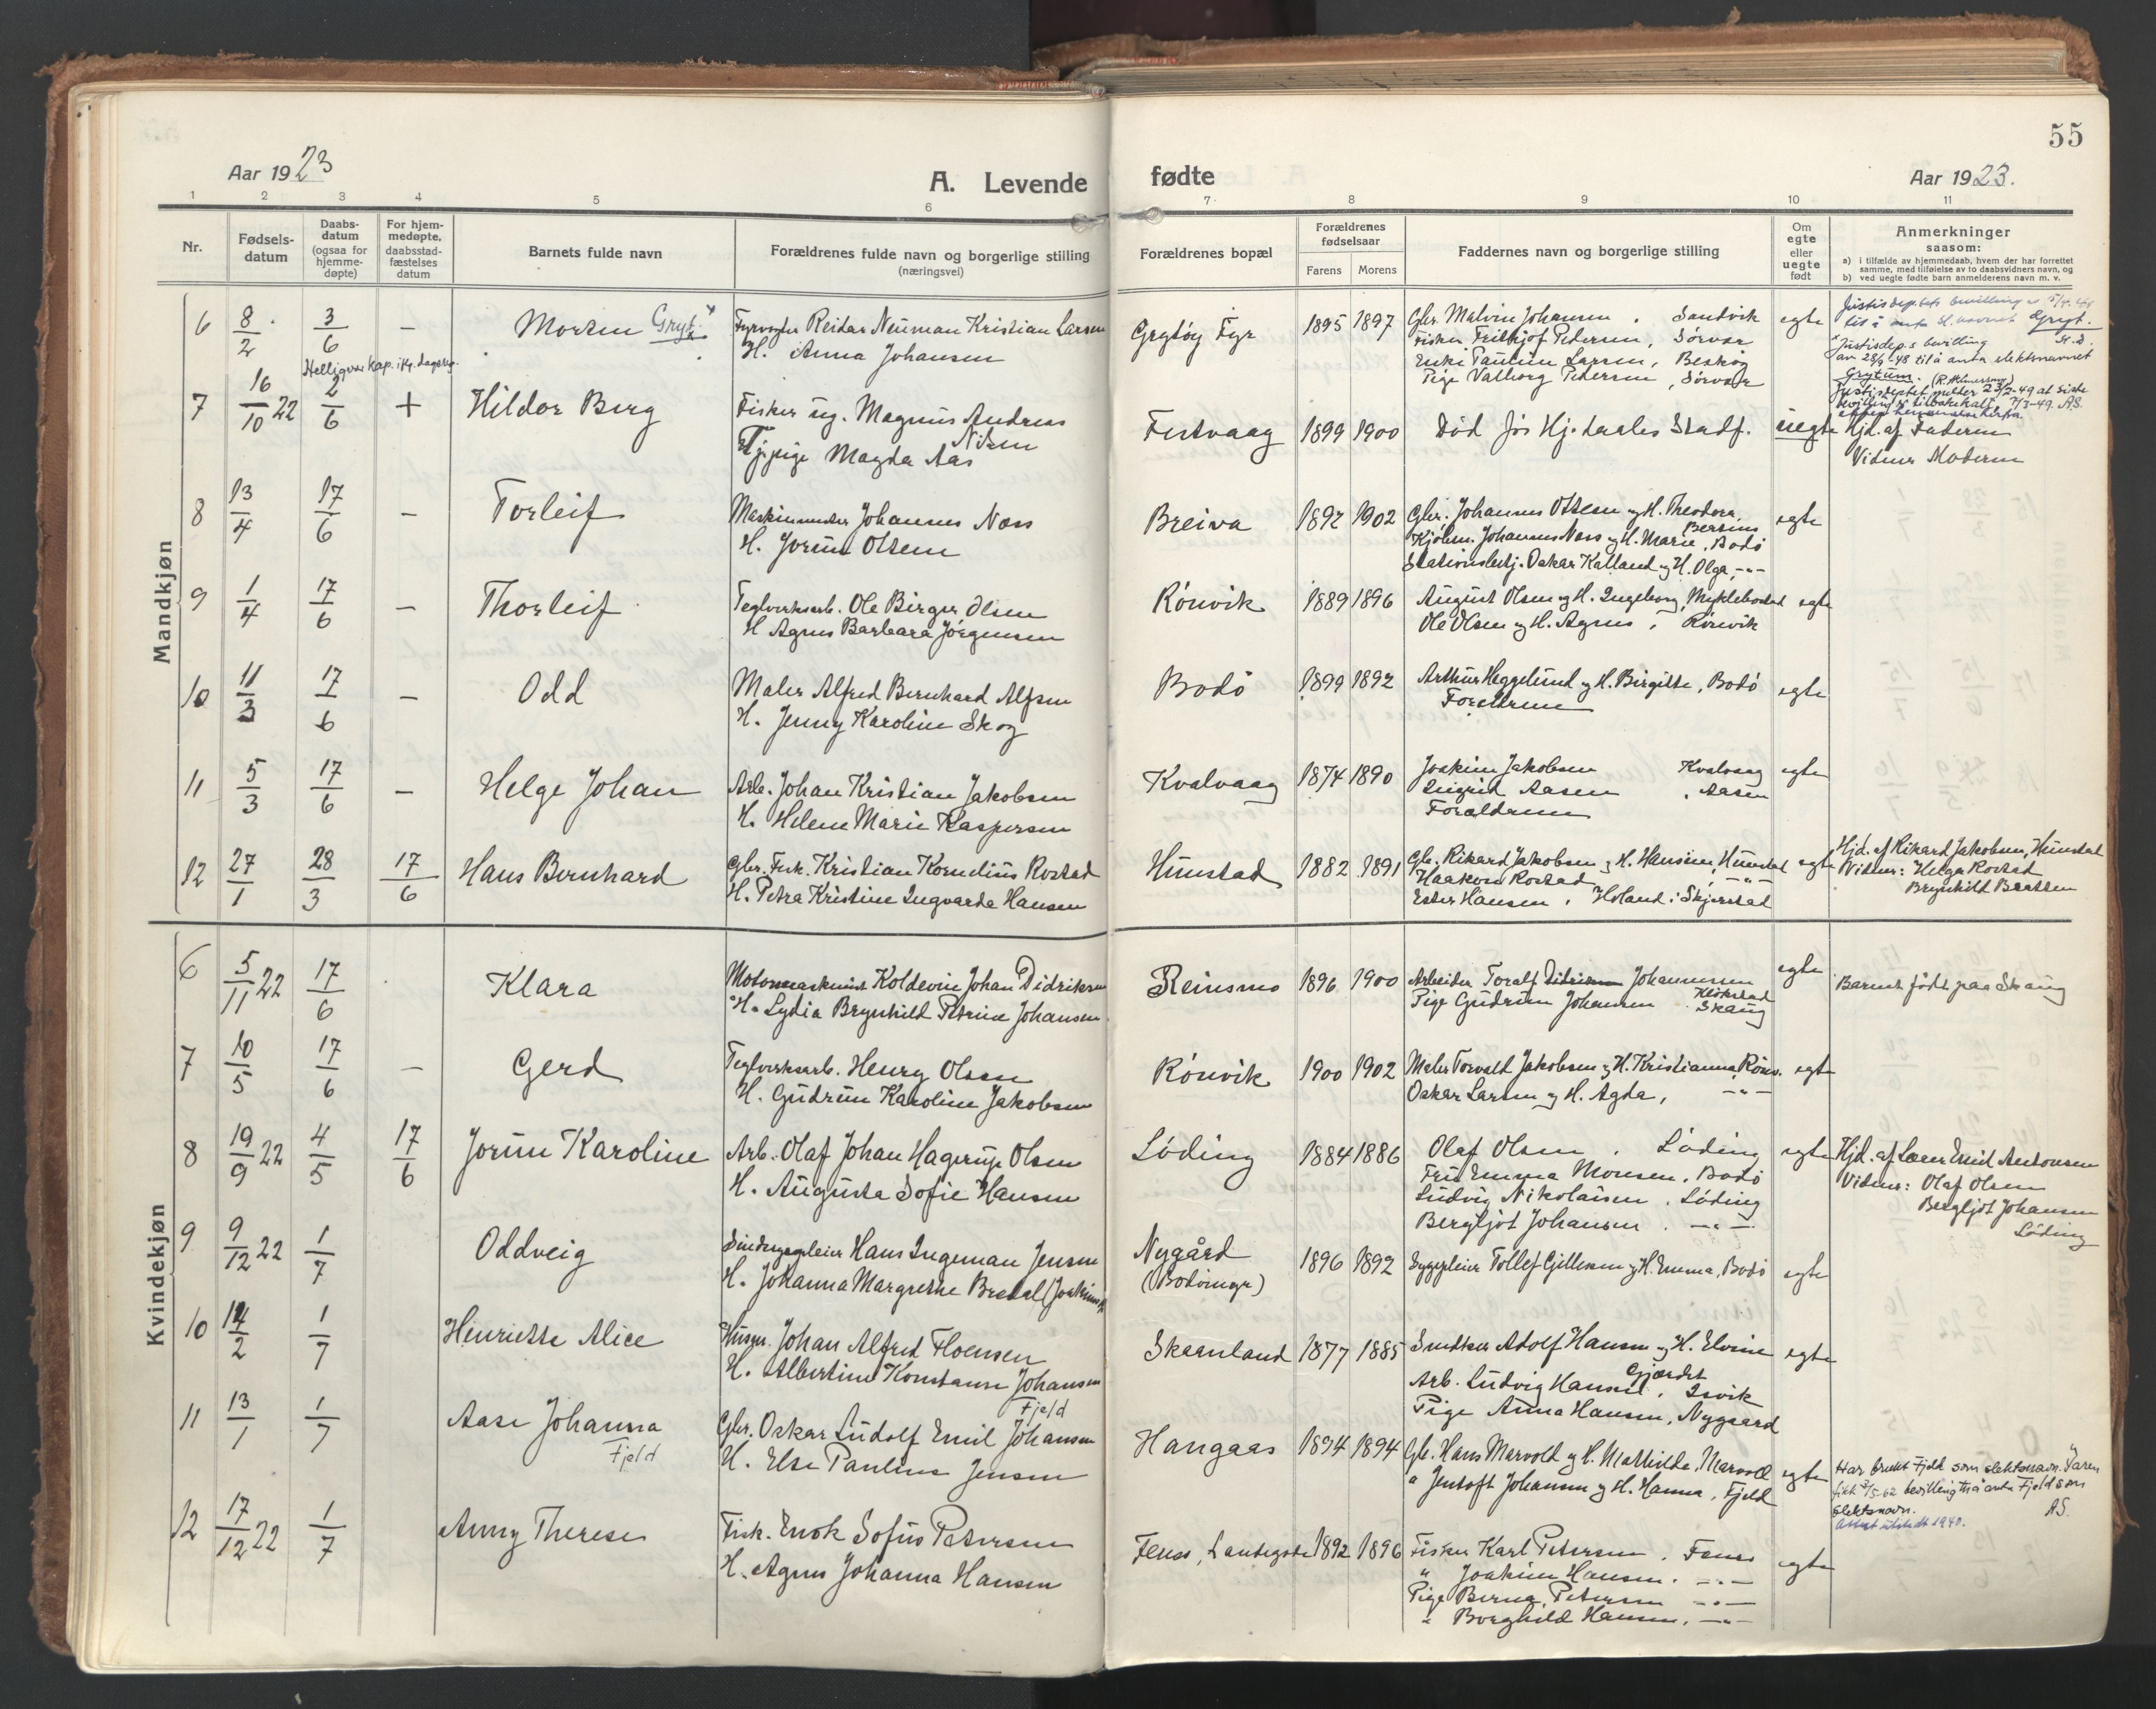 55
Aar 1923
A. Levende
fødte
Aar 1923.
1 2 3 4 5 6
7 8 9 10 11
Nr.
Fødsels-
datum
Daabs-
datum
(ogsaa for
hjemme-
døpte)
For hjem-
medøpte,
daabsstad-
fæstelses
datum
Barnets fulde navn
Forældrenes fulde navn og borgerlige stilling
(næringsvei)
Forældrenes bopæl
Forældrenes
fødselsaar
Farens Morens
Faddernes navn og borgerlige stilling
Om
egte
eller
uegte
født
Anmerkninger
saasom:
a) i tilfælde av hjemmedaab, hvem der har forrettet
samme, med tilføielse av to daabsvidners navn, og
b) ved uegte fødte barn anmelderens navn m. v.
Mandkjøn
6 8/2 3/6 — Morten
Fyrvogter Reidar Neuman Kristian Larsen
H. Anna Johansen
Grytøy Fyr 1895 1897
Gbr. Malvin Johansen, Sandvik
Fisker Frithjof Pedersen, Sørvær
Enke Pauline Larsen,
Pige Valborg Pedersen, Sørvær
egte
Justisdep.s bevilling
av 28/1-48 til å anta slektsnavnet
Grytum.
7 16/10 22 2/6 + Hildor Berg
Fisker ug. Magnus Andreas
Nilsen
Magda Aas
Festvaag 1899 1900
Død før Hj.daabs Stadf.
uegte
Hjd. af Faderen
Vidner Moderen
8 13/4 17/6 — Torleif
Maskinmester Johannes Næss
H. Jorun Olsen
Breiva 1892 1902
Gbr. Johannes Olsen og H. Theodora,
Kjøbm. Johannes Næss og H. Marie, Bodø
Oskar Kalland og H. Olga, -"-
egte
9 1/4 17/6 — Thorleif
Teglverksarb. Ole Birger Olsen
H. Agnes Barbara Jørgensen
Rønvik 1889 1896
August Olsen og H. Ingeborg, Myklebostad
Ole Olsen og H. Agnes, Rønvik
egte
10 11/3 17/6 — Odd
Maler Alfred Bernhard Alfsen
H. Jenny Karoline Skog
Bodø 1899 1892
Arthur Heggelund og H. Birgitte, Bodø
Foreldrene
egte
11 5/3 17/6 — Helge Johan
Arb. Johan Kristian Jakobsen
H. Helene Marie Kaspersen
Kvalvaag 1874 1890
Joakim Jakobsen Kvalvaag
Sigrid Aasen, Aasen
Forældrene
egte
12 27/1 28/3 17/6 Hans Bernhard
Gbr. Fisk. Kristian Kornelius Rostad
H. Petra Kristine Ingvarda Hansen
Hunstad 1882 1891
Gb. Rikard Jakobsen og H. Hansine, Hunstad
Haakon Rostad, -"-
Ester Hansen, Høland i Skjerstad
egte
Hjd. af Rikard Jakobsen, Hunstad
Vidner: Helga Rostad
Brynhild Baatsen
Kvindekjøn
6 5/11 22 17/6 Klara
Motormaskinist Koldevin Johan Didriksen
H. Lydia Brynhild Petrine Johansen
Reinsmo 1896 1900
Arbeider Toralf Johannesen
Klokstad
Pige Gudrun Johansen. Skaug
egte
Barnet født paa Skaug
7 10/5 17/6 — Gerd
Teglverksarb. Henry Olsen
H. Gudrun Karoline Jakobsen
Rønvik 1900 1902
Maler Torvald Jakobsen og H. Kristianna, Rønv.
Oskar Larsen og H. Agda, -"-
egte
8 19/9 22 4/5 17/6 Jorun Karoline
Arb. Olaf Johan Hagerup Olsen
H. Augusta Sofie Hansen
Løding 1884 1886
Olaf Olsen, Løding
Fru Emma Monsen, Bodø
Ludvig Nikolaisen, Løding
Bergljot Johansen, -"-
egte
Hjd. af Lærer Emil Antonsen
Vidner: Olaf Olsen
Bergljot Johansen
Løding
9 9/12 22 1/7 Oddveig
Sindsygepleier Hans Ingeman Jensen
H. Johanna Margrethe Bredal
Nygård
(Bodømyr)
1896 1892
Sygepleier Tollef Gillesen og H. Emma, Bodø
egte
10 14/2 1/7 Henriette Alice
Husm. Johan Alfred Floensen
H. Albertine Konstanse Johansen
Skaanland 1877 1885
Snedker Adolf Hansen og H. Elvine
Gjærdet
Arb. Ludvig Hansen, Isvik
Pige Anna Hansen, Nygaard
egte
11 13/1 1/7 Aase Johanna
Fjeld
Fjeld
Gbr. Oskar Ludolf Emil Johansen
H. Else Pauline Jensen
Hangaas 1894 1894
Gb. Hans Marvold og H. Mathilde, Marvold
" Jentoft Johansen og H. Hanna, Fjeld
egte
Har brukt Fjeld som slektsnavn. Faren
fikt 3/5-62 bevilling til å anta Fjeld som
slektsnavn. AS.
Attest utstedt 1940.
12 17/12 22 1/7 Anny Therese
Fisk. Enok Sofus Petersen
H. Agnes Johanna Hansen
Fenes, Landegode 1892 1896
Fisker Karl Petersen, Fenes
" Joakim Hansen, -"-
Pige Berna Petersen -"-
" Borghild Hansen, -"-
egte